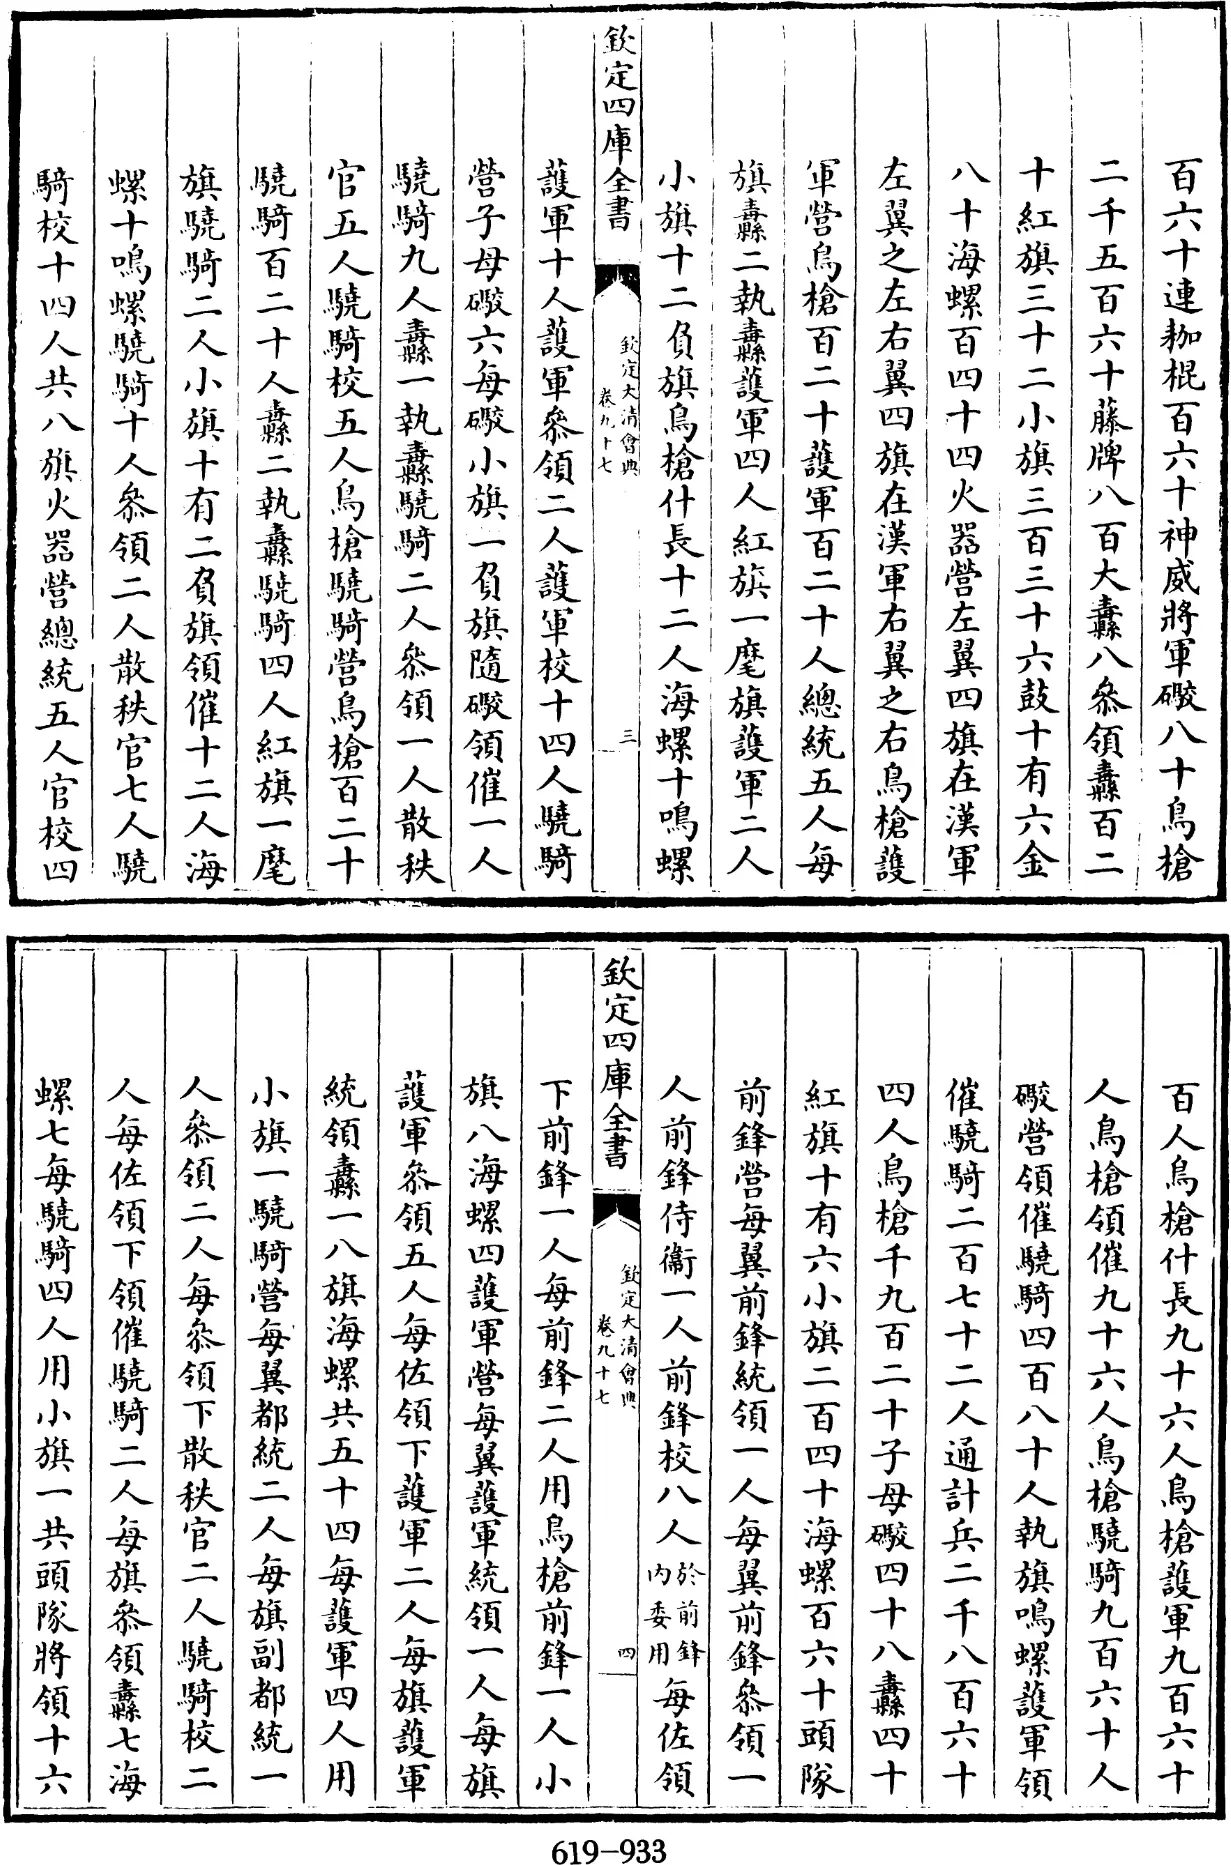 百六十連耞棍百六十神威將軍礮八十鳥槍
二千五百六十藤牌八百大纛八叅領纛百二
十紅旗三十二小旗三百三十六鼓十有六金
八十海螺百四十四火器營左翼四旗在漢軍
左翼之左右翼四旗在漢軍右翼之右鳥槍護
軍營鳥槍百二十護軍百二十人總統五人每
旗纛二執纛護軍四人紅旗一麾旗護軍二人
小旗十二負旗鳥槍什長十二人海螺十鳴螺
欽定四庫全書
欽定大清會典
卷九十七
三
護軍十人護軍叅領二人護軍校十四人驍騎
營子母礮六每礮小旗一負旗隨礮領催一人
驍騎九人纛一執纛驍騎二人叅領一人散秩
官五人驍騎校五人鳥槍驍騎營鳥槍百二十
驍騎百二十人纛二執纛驍騎四人紅旗一麾
旗驍騎二人小旗十有二負旗領催十二人海
螺十鳴螺驍騎十人叅領二人散秩官七人驍
騎校十四人共八旗火器營總統五人官校四
百人鳥槍什長九十六人鳥槍護軍九百六十
人鳥槍領催九十六人鳥槍驍騎九百六十人
礮營領催驍騎四百八十人執旗鳴螺護軍領
催驍騎二百七十二人通計兵二千八百六十
四人鳥槍千九百二十子母礮四十八纛四十
紅旗十有六小旗二百四十海螺百六十頭隊
前鋒營每翼前鋒統領一人每翼前鋒叅領一
人前鋒侍衞一人前鋒校八人於前鋒內委用每佐領
欽定四庫全書
欽定大清會典
卷九十七
四
下前鋒一人每前鋒二人用鳥槍前鋒一人小
旗八海螺四護軍營每翼護軍統領一人每旗
護軍叅領五人每佐領下護軍二人每旗護軍
統領纛一八旗海螺共五十四每護軍四人用
小旗一驍騎營每翼都統二人每旗副都統一
人叅領二人每叅領下散秩官二人驍騎校二
人每佐領下領催驍騎二人每旗叅領纛七海
螺七每驍騎四人用小旗一共頭隊將領十六
619-933